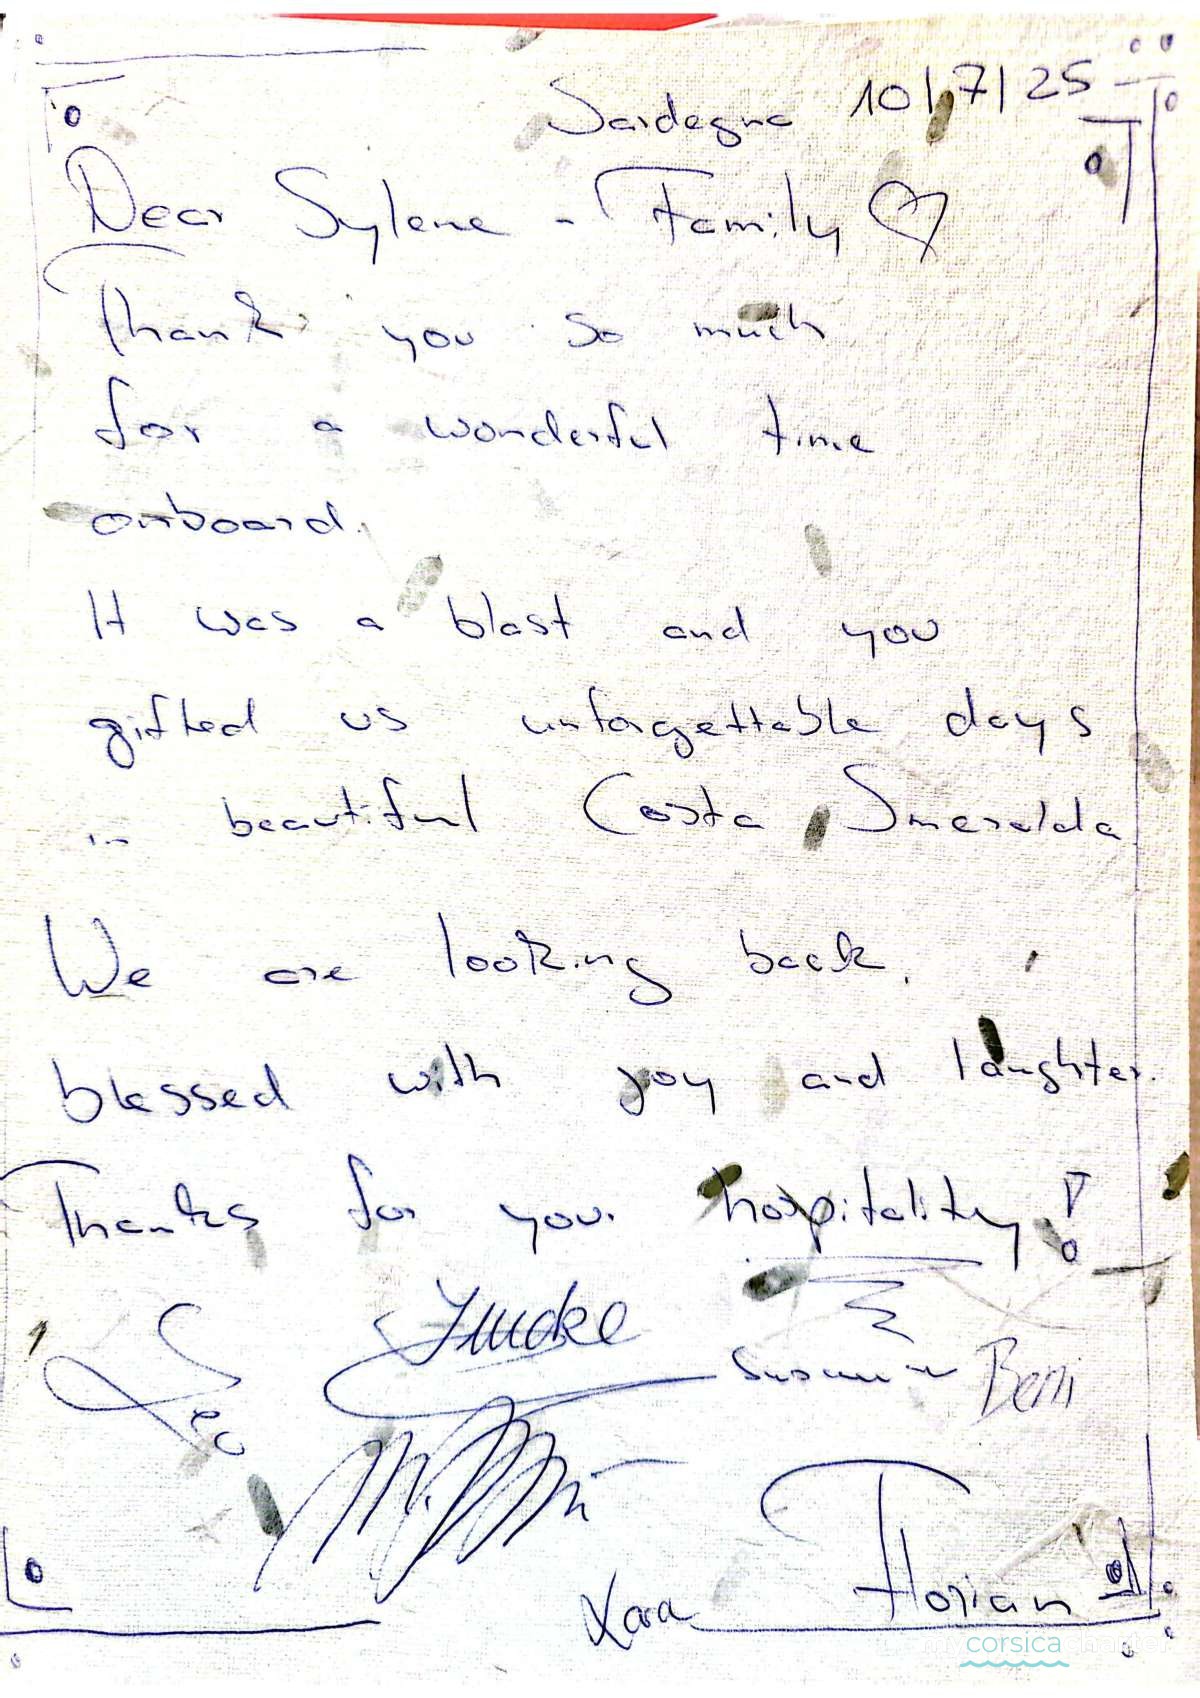 Sardegna 10/7/25
Dear Sylene - Family ♡
Thank you so much
for a wonderful time
onboard.
It was a blast and you
gifted us unforgettable days
in beautiful Costa Smeralda
We are looking back,
blessed with joy and laughter.
Thanks for your hospitality!
Leo
Beni
Florian
corsica